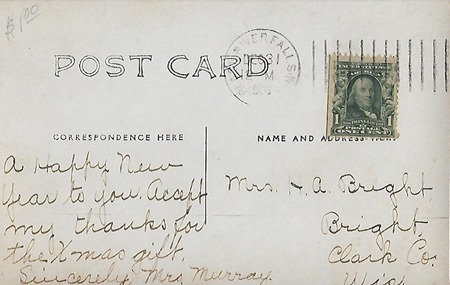 $1.00
DEC 31
M
POST CARD
1
CORRESPONDENCE HERE
NAME AND ADDRESS HERE
A Happy New
Year to you. Accept
my thanks for
the Xmas gift.
Sincerely, Mrs. Murray
Mrs. H. A. Bright
Bright,
Clark Co.
Wis